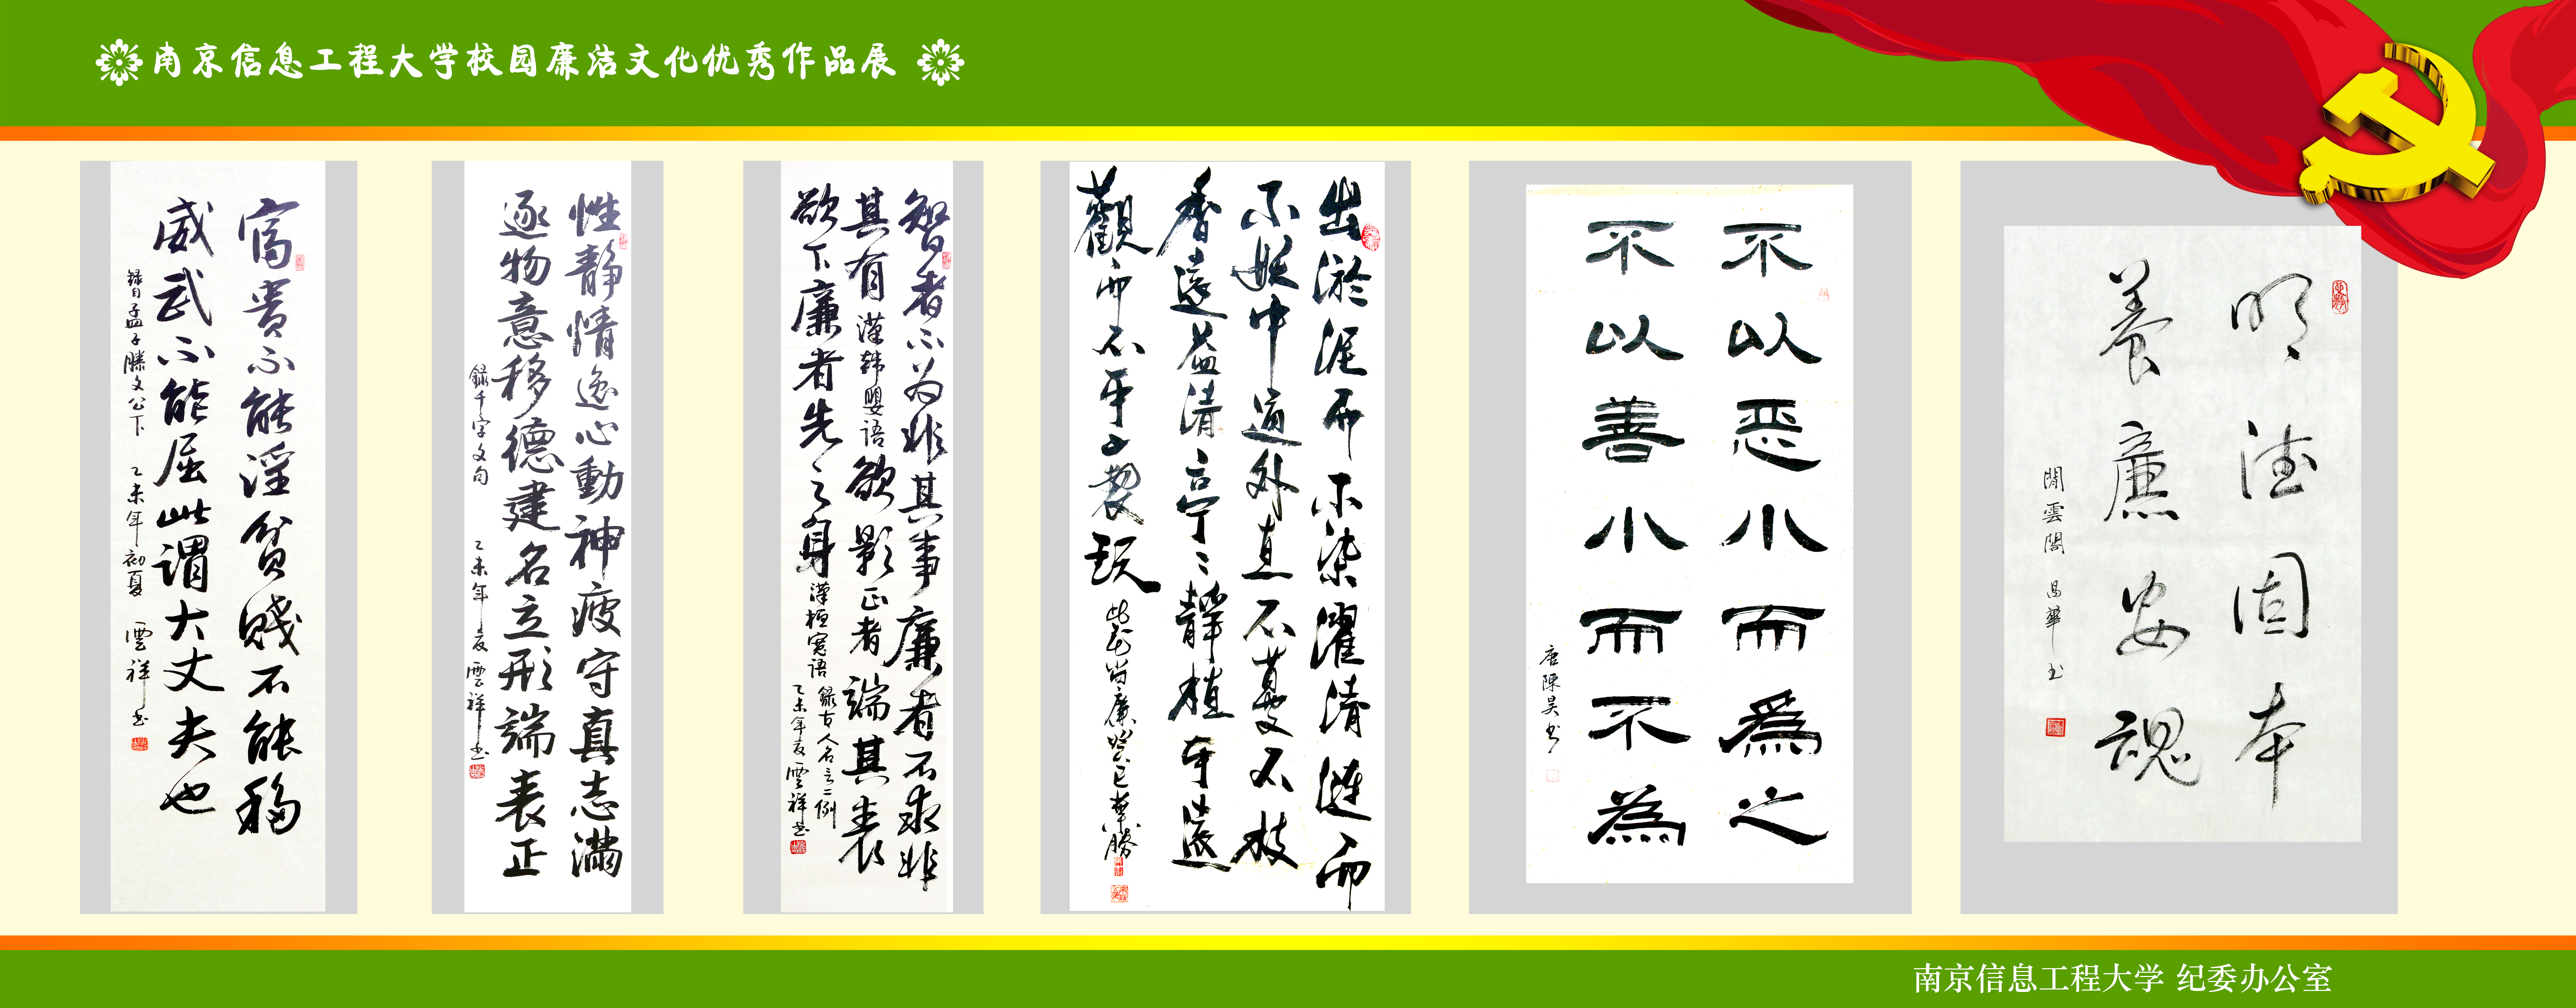 南京信息工程大学校园廉洁文化优秀作品展
富貴不能淫貧賤不能移
威武不能屈此謂大丈夫也
錄自孟子滕文公下 乙未年初夏 雲祥书
性静情逸心動神疲守真志滿
逐物意移德建名立形端表正
錄千字文句 乙未年夏 雲祥书
智者不为非其事廉者不求非
其有 漢韩嬰语 欲影正者端其表
欲下廉者先之身 漢桓寬语 錄古人名言二例
乙未年夏雲祥书
出淤泥而不染濯清涟而
不妖中通外直不蔓不枝
香遠益清亭〻静植可遠
觀而不可褻玩
不以恶小而為之
不以善小而不為
唐陳昊书
明德固本
養廉安魂
閒雲閣 昌華书
南京信息工程大学 纪委办公室